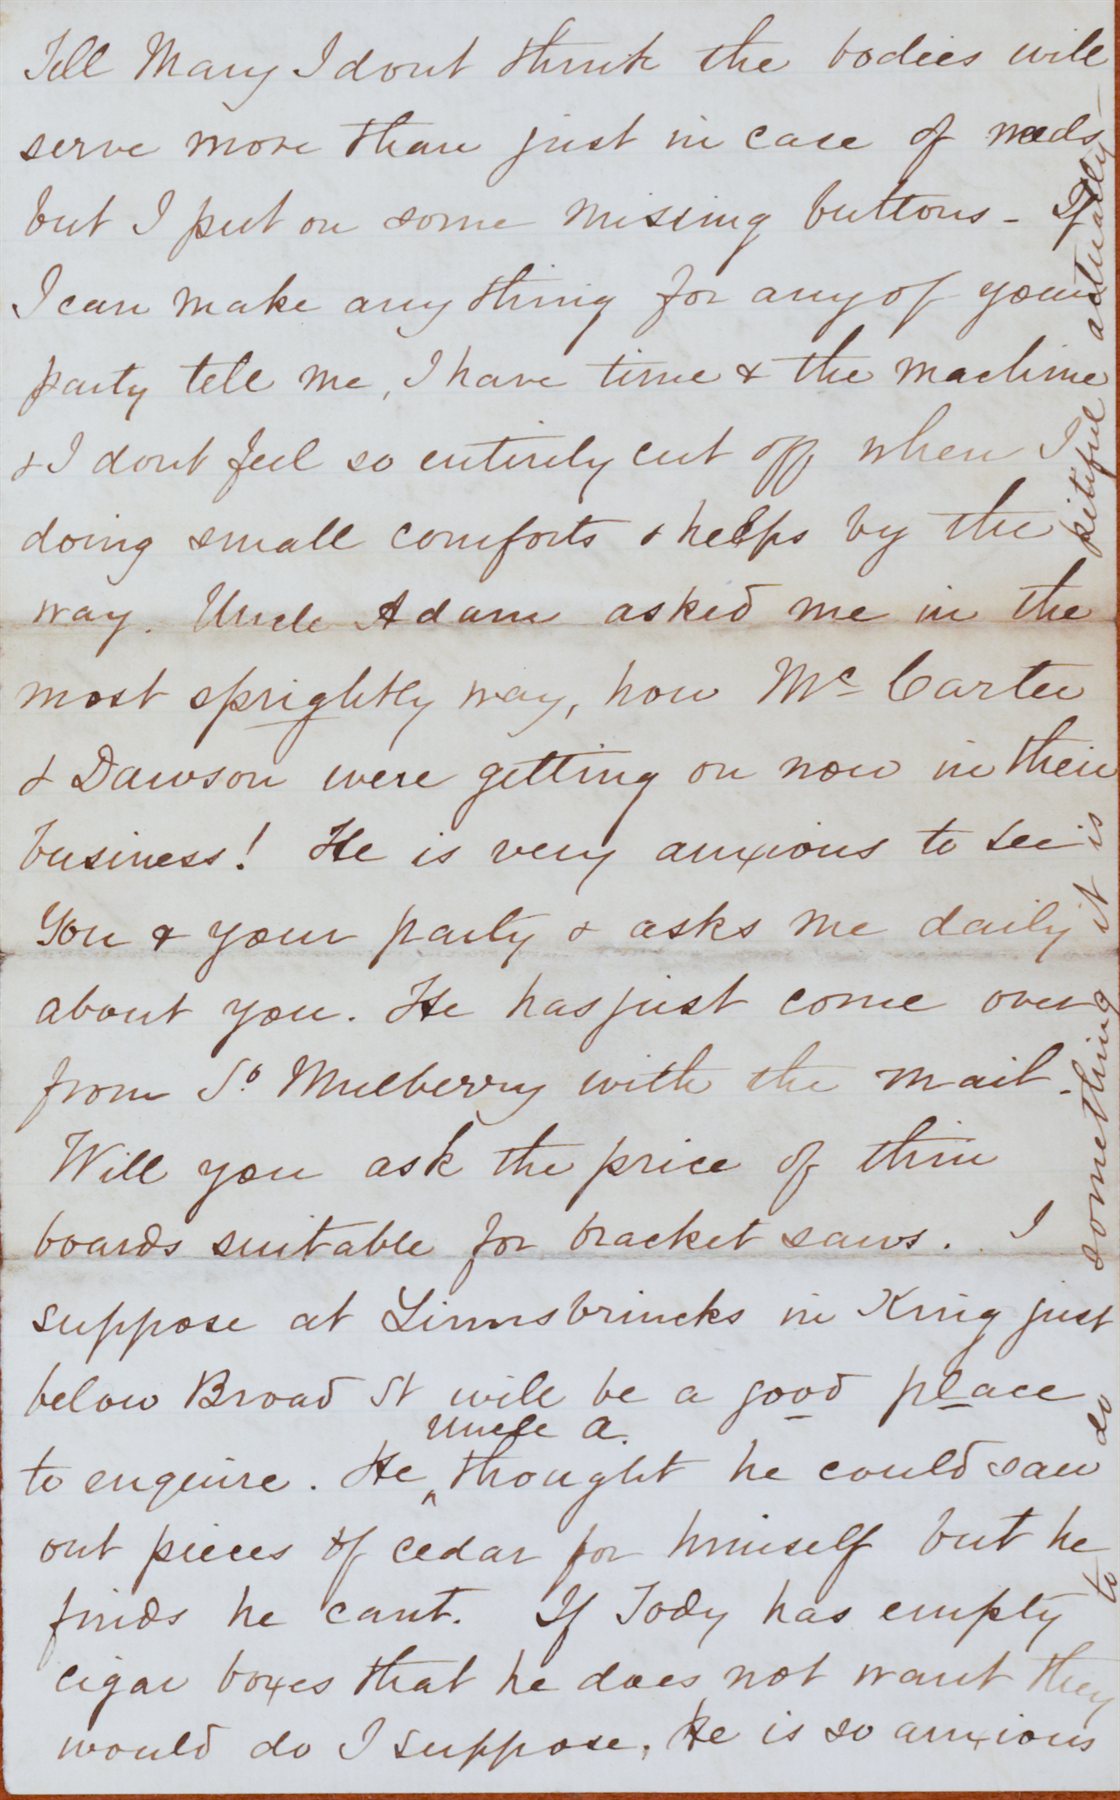 Tell Mary I dont think the bodies will
serve more than just in case of needs -
but I put on some missing buttons - If
I can make any thing for any of your
party tell me, I have time & the machine
& I dont feel so entirely cut off when I
doing small comforts & helps by the
way. Uncle Adam asked me in the
most sprightly way, how Mc Carter
& Dawson were getting on now in their
business! He is very anxious to see
You & your party & asks me daily
about you. He has just come over
from So Mulberry with the mail -
Will you ask the price of thin
boards suitable for bracket saws. I
suppose at in King just
below Broad St will be a good place
to enquire. He ^ Uncle A. thought he could saw
out pieces of cedar for himself but he
finds he cant. If Tody has empty
cigar boxes that he does not want they
would do I suppose. He is so anxious
to do something it is pitiful actually